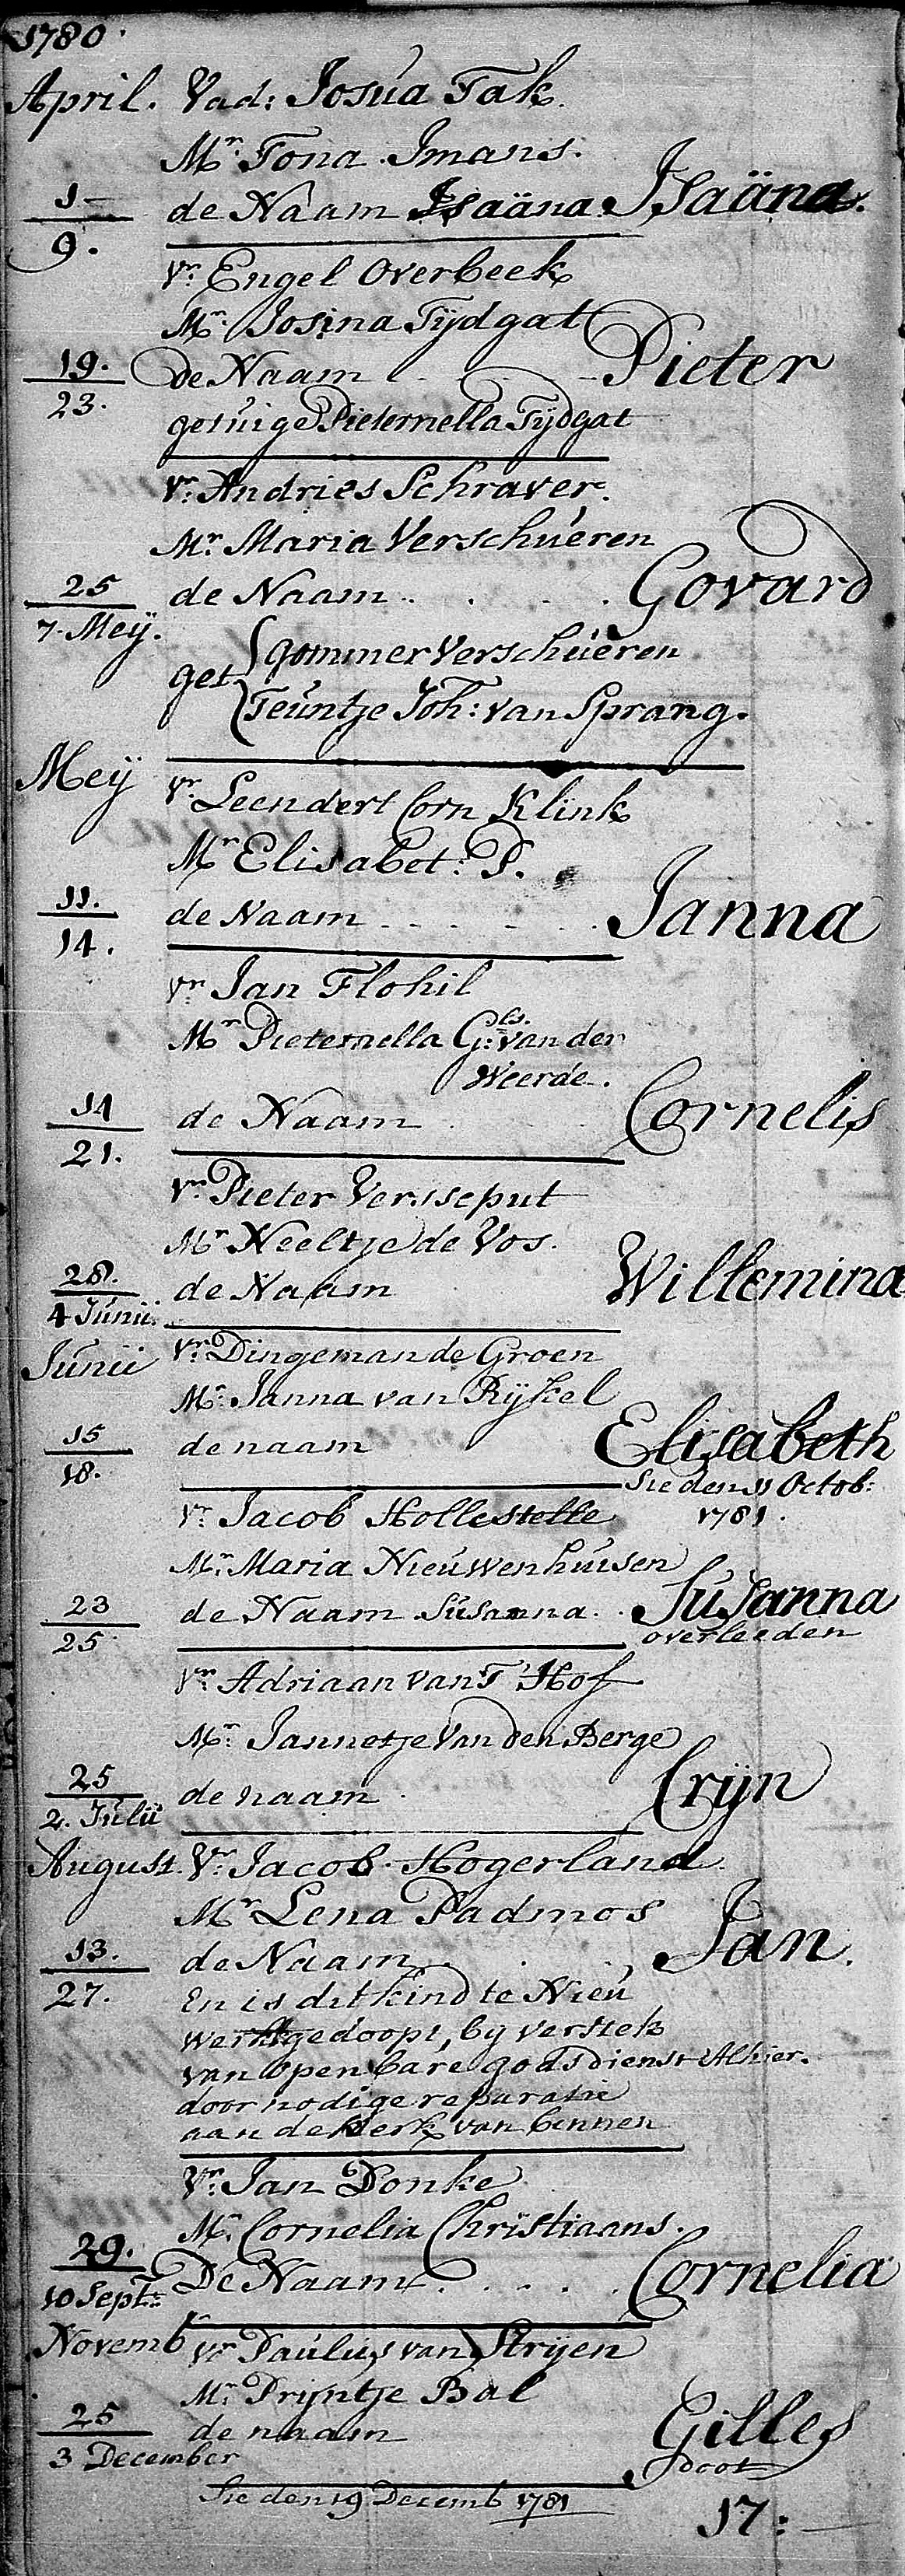 1780.
April. Vad: Josua Tak.
Mr. Tona Imans.
1
9.
de Naam Isaäna Isaäna.
Vr. Engel Overbeek
Mr. Josina Tijdgat
19.
23.
de Naam . . . Pieter
getuige Pieternella Tijdgat
Vr. Andries Schraver.
Mr. Maria Verschueren
25
7. Meij.
de Naam . . . . Govard
get
Gommer Verschueren
Teuntje Joh: van Sprang.
Meij
Vr. Leendert Corn Klink
Mr. Elisabet: P.
11.
14.
de Naam . . . . . Janna
Vr Jan Flohil
Mr Pieternella G:ls. van der
Weerde.
14
21.
de Naam . . . Cornelis
Vr. Pieter Versseput
Mr Neeltje de Vos.
28.
4 Junii.
de Naam Willemina
Junii
Vr. Dingeman de Groen
Mr. Janna van Rijkel
15
18.
de naam Elisabeth
Sie den 11 Octob:
1781.
Vr. Jacob Hollestelle
Mr. Maria Nieuwenhuisen
23
25
de Naam Susanna. . Susanna
overleeden
Vr. Adriaan van T' Hof
Mr. Jannetje Van den Berge
25
2. Julii
de naam . Crijn
August. Vr. Jacob Hogerland.
Mr Lena Padmos
13.
27.
de Naam . . . Jan.
En is dit kind te Nieu
werkk gedoopt, bij verstek
van openbare godsdienst Alhier.
door nodige reparatie
aan de kerk van binnen
Vr. Jan Donke
Mr. Cornelia Christiaans.
29.
10 Sept:
De Naam . . . . . Cornelia
Novemb
Vr Paulus van Strijen
Mr. Prijntje Bal
25
3 December
de naam Gilles
doot
Sie den 19 Decemb 1781
17: